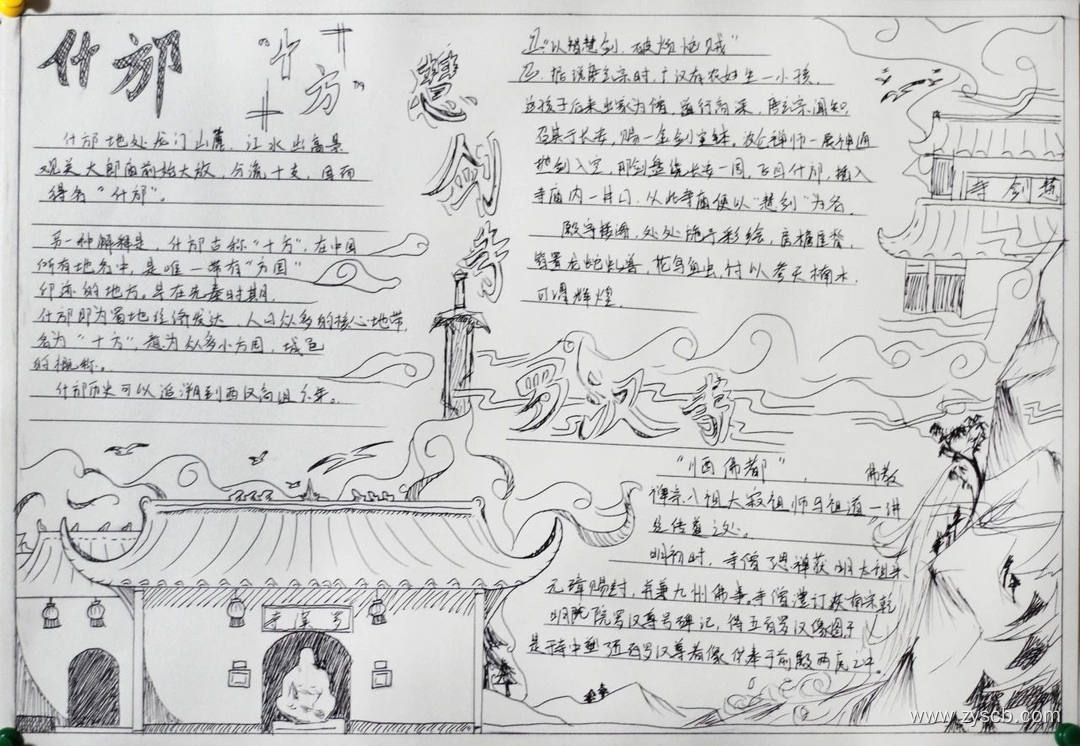 什邡
"十方"
什邡地处龙门山麓,江水出高景
观关大郎庙前始大放,分流十支,因而
得名"什邡"。
另一种解释是,什邡古称"十方",在中国
所有地名中,是唯一带有"方国"
印迹的地方。早在先秦时期,
什邡即为蜀地经济发达、人口众多的核心地带,
名为"十方",意为众多小方国,城邑
的概称。
什邡历史可以追溯到西汉高祖六年。
慧剑寺
1."以智慧剑,破烦恼贼"
2.据说唐玄宗时,广汉有农妇生一小孩,
这孩子后来出家为僧,道行高深,唐玄宗闻知,
召其于长安,赐一金剑宝钵。这位禅师一展神通
地剑入空,那剑盘绕长安一周,飞回什邡,插入
寺庙内一井口,从此寺庙便以"慧剑"为名。
殿宇楼阁,处处施于彩绘,房檐屋脊,
皆置龙蛇虬兽,花鸟鱼虫,衬以参天楠木,
可谓辉煌。
寺剑慧
罗汉寺
"西佛都", 佛教
禅宗八祖大寂祖师马祖道一讲
经传道议处。
明初时,寺僧了思禅获明太祖朱
元璋赐封,并兼九州佛事。寺僧澄订获南宋乾
明院罗汉尊号碑记,得五百罗汉像图于
是于寺中塑五百罗汉尊者像供奉于前殿两庑之中。
寺漢罗
www.zyscb.com